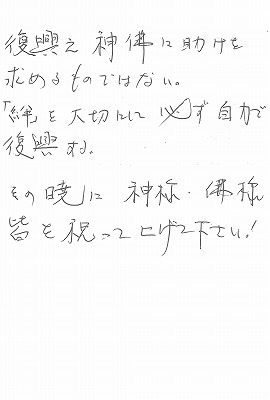 復興え神佛に助けを
求めるものではない。
「絆を大切にして必ず自力で
復興する。
その暁に 神祢・佛祢
皆を祝って上げて下さい!